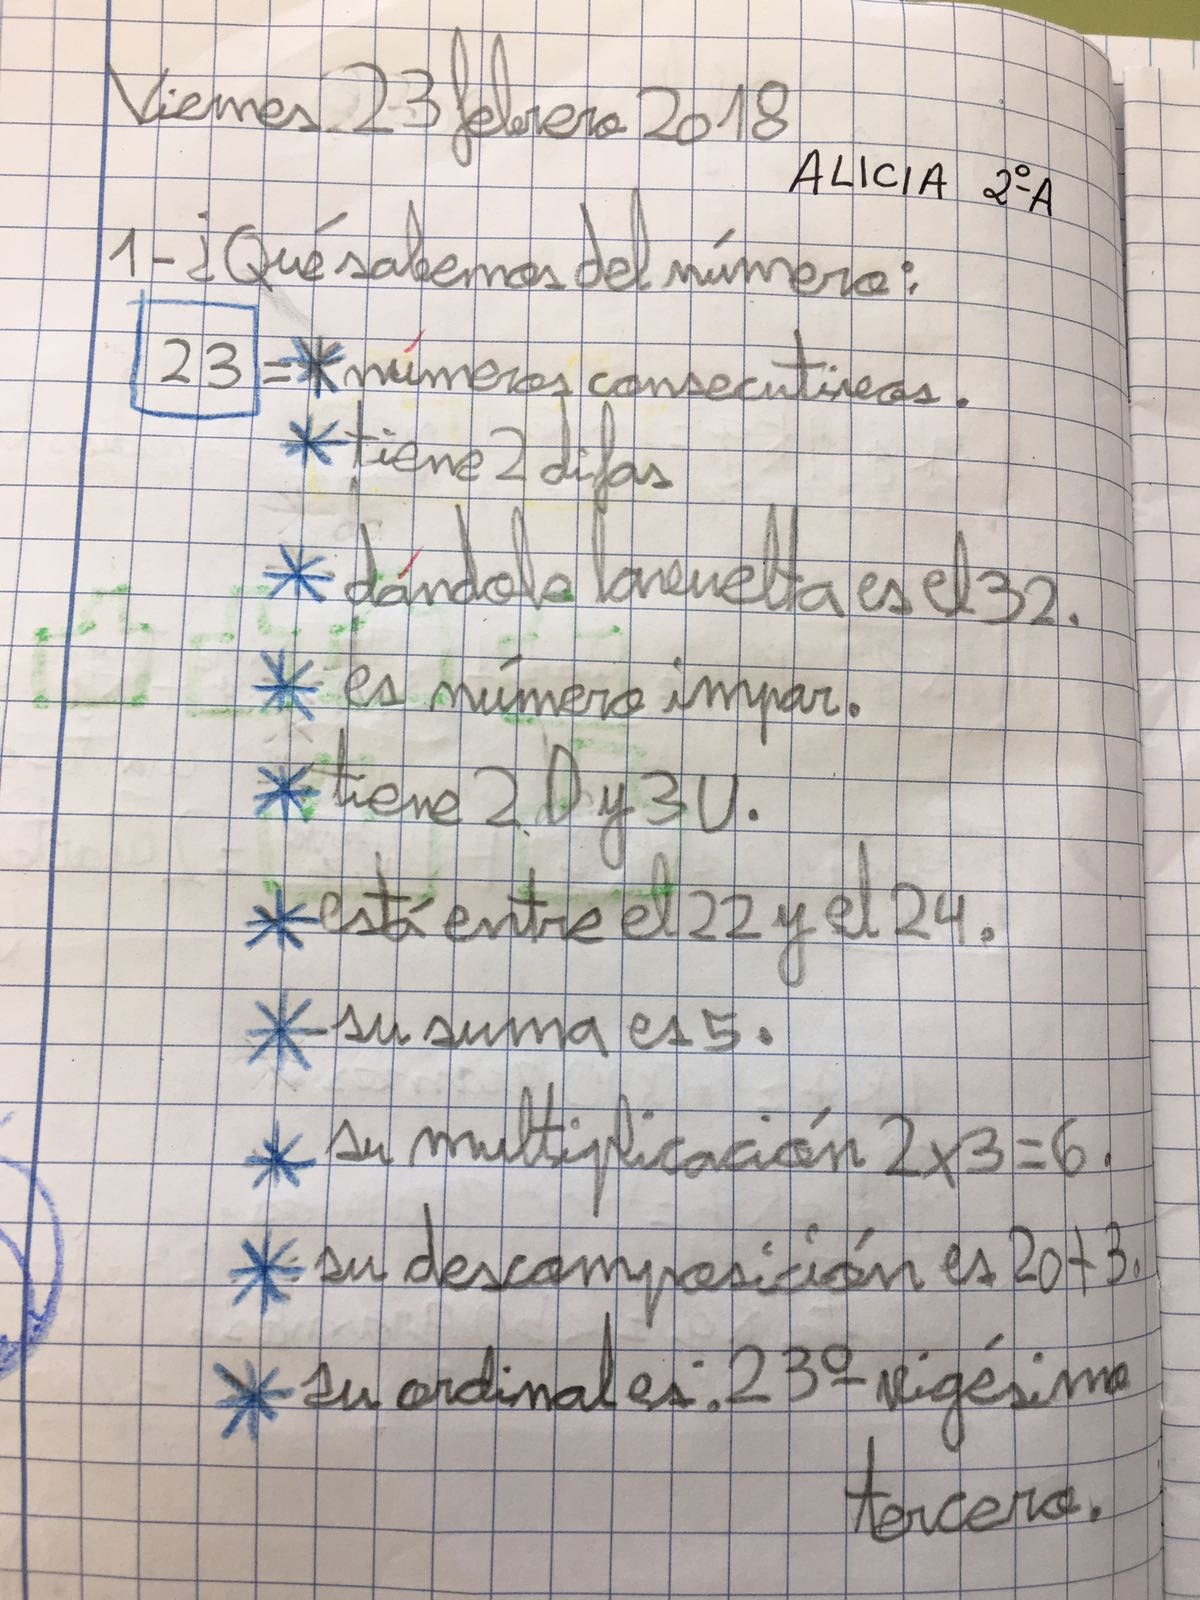 Viernes 23 febrero 2018
ALICIA 2ºA
1-¿Qué sabemos del número:
23 = * números consecutivos.
* tiene 2 difas
* dándole la vuelta es el 32.
* es número impar.
* tiene 2 D y 3 U.
* está entre el 22 y el 24.
* su suma es 5.
* su multiplicación 2x3=6.
* su descomposición es 20+3.
* su ordinal es: 23º vigésimo
tercero.